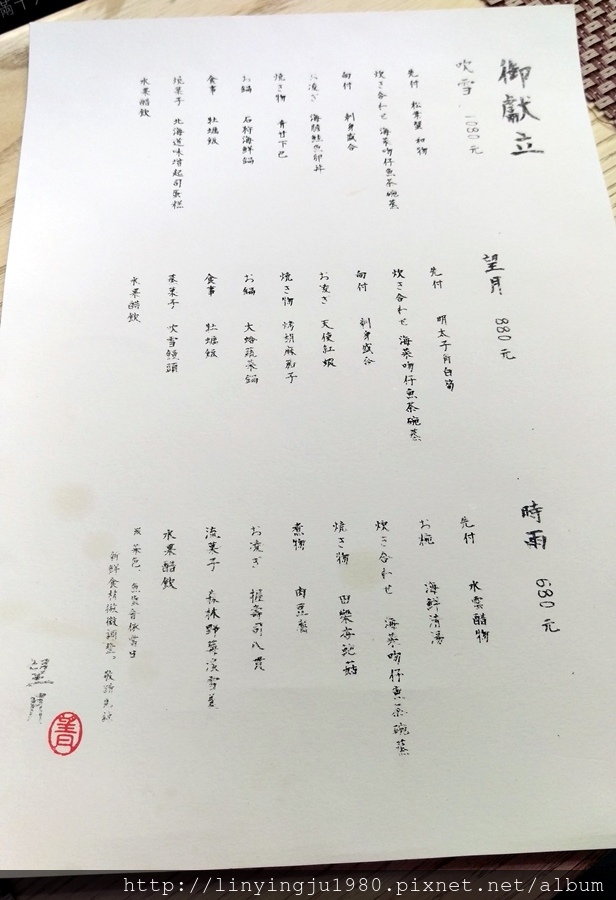 御獻立
吹雪 1080元
先付 松葉蟹 和物
炊き合わせ 海菜吻仔魚茶碗蒸
向付 刺身盛合
お凌ぎ 海膽鮭魚卵丼
焼き物 青甘下巴
お鍋 石狩海鮮鍋
食事 牡蠣飯
燒菓子 北海道味增起司蛋糕
水果醋飲
望月 880元
先付 明太子角白筍
炊き合わせ 海菜吻仔魚茶碗蒸
向付 刺身盛合
お凌ぎ 天使紅蝦
焼き物 烤胡麻茄子
お鍋 大蛤蔬菜鍋
食事 牡蠣飯
蒸菓子 吹雪饅頭
水果醋飲
時雨 680元
先付 水雲醋物
お椀 海鮮清湯
炊き合わせ 海菜吻仔魚茶碗蒸
焼き物 田樂杏鮑菇
煮物 肉豆腐
お凌ぎ 握壽司八貫
流菓子 森林野莓淡雪羹
水果醋飲
菜色、魚貨會依當日
新鮮食材做微調整。敬請見諒
http://linyingju1980.pixnet.net/album